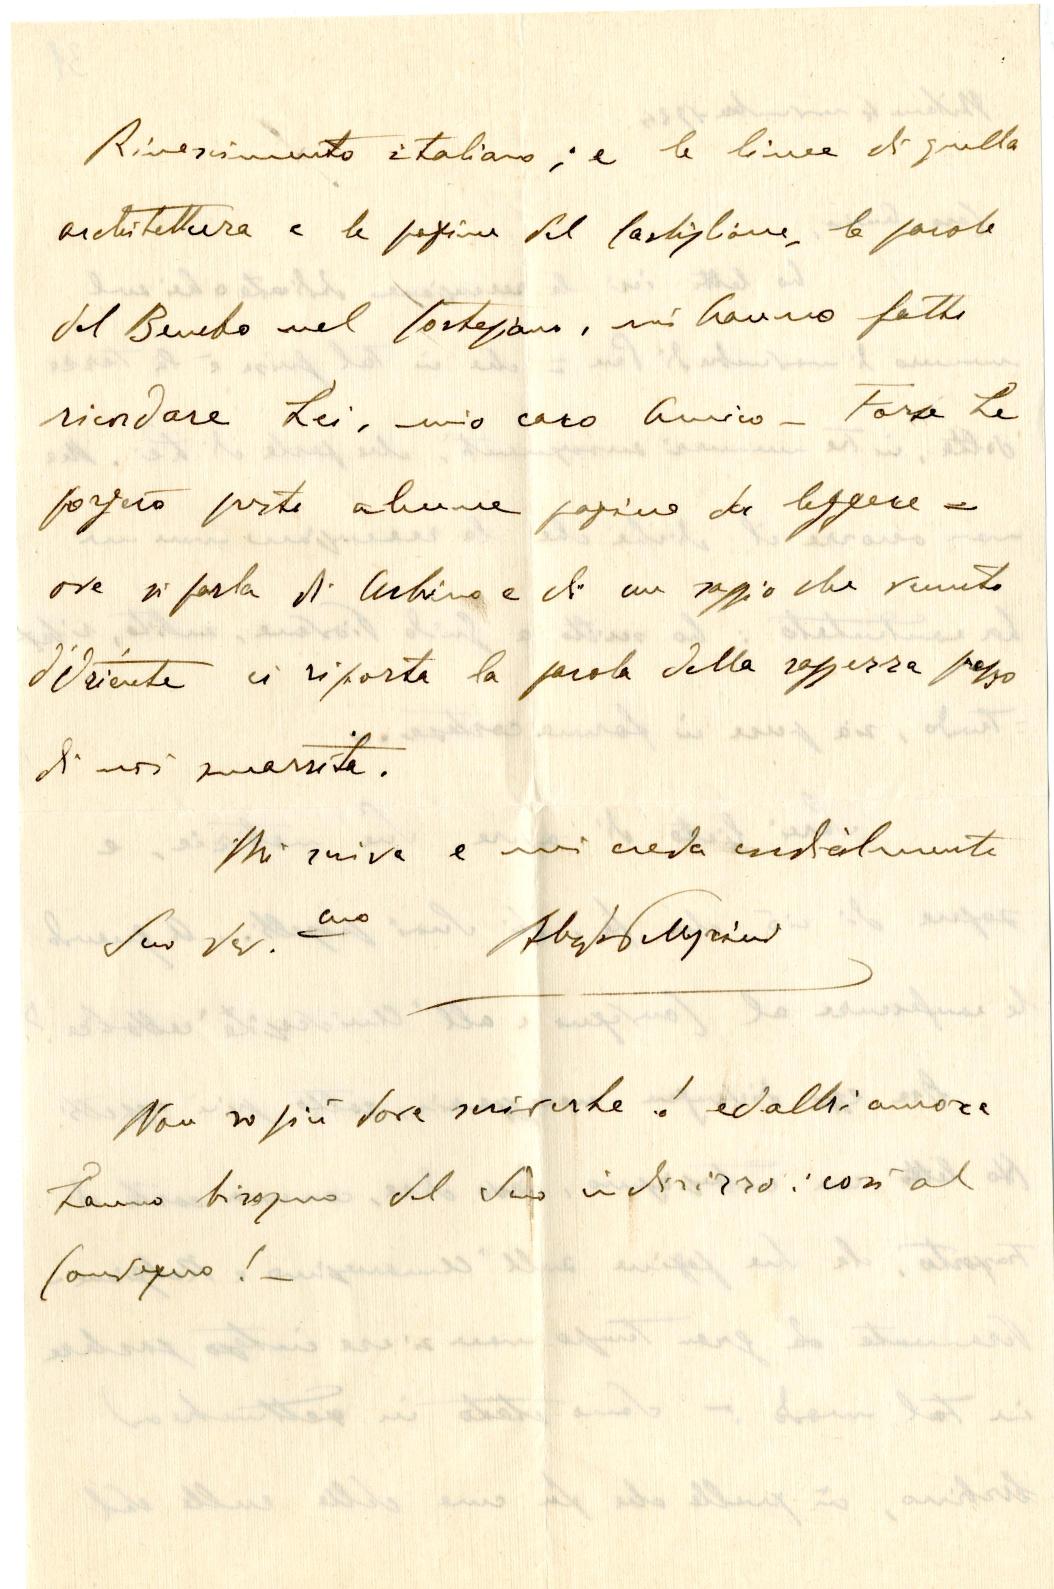 Rinascimento italiano; e le linee di quella
architettura e le pagine del Castiglione, le parole
del Bembo nel Cortegiano, mi hanno fatto
ricordare Lei, mio caro Amico - Forse Le
porgerò presto alcune pagine da leggere -
ove si parla di Urbino e di un saggio che venuto
d'Oriente ci riporta la parola della saggezza presso
di noi smarrita.
Mi scriva e mi creda cordialmente
Suo dev.mo
Non so più dove scriverle! ed altri ancora
hanno bisogno del Suo indirizzo: così al
Convegno! -